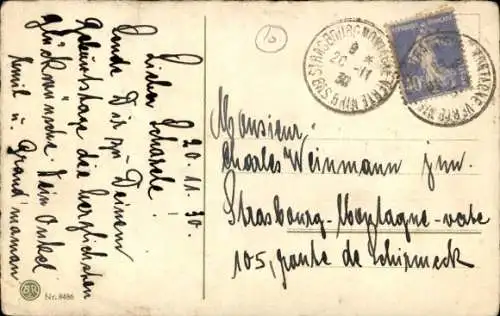 20.11.30.
Lieber Scharele!
Sende Dir zu Deinem
Geburtstage die herzlichsten
Glückwünsche. Dein Onkel
Emil u. Grand'maman
Nr. 8486
STRASBOURG MONTAGNE VERTE
9 *
20-11
30
Monsieur
Charles Weinmann jun.
Strasbourg-Montagne-verte
105, route de Schirmeck